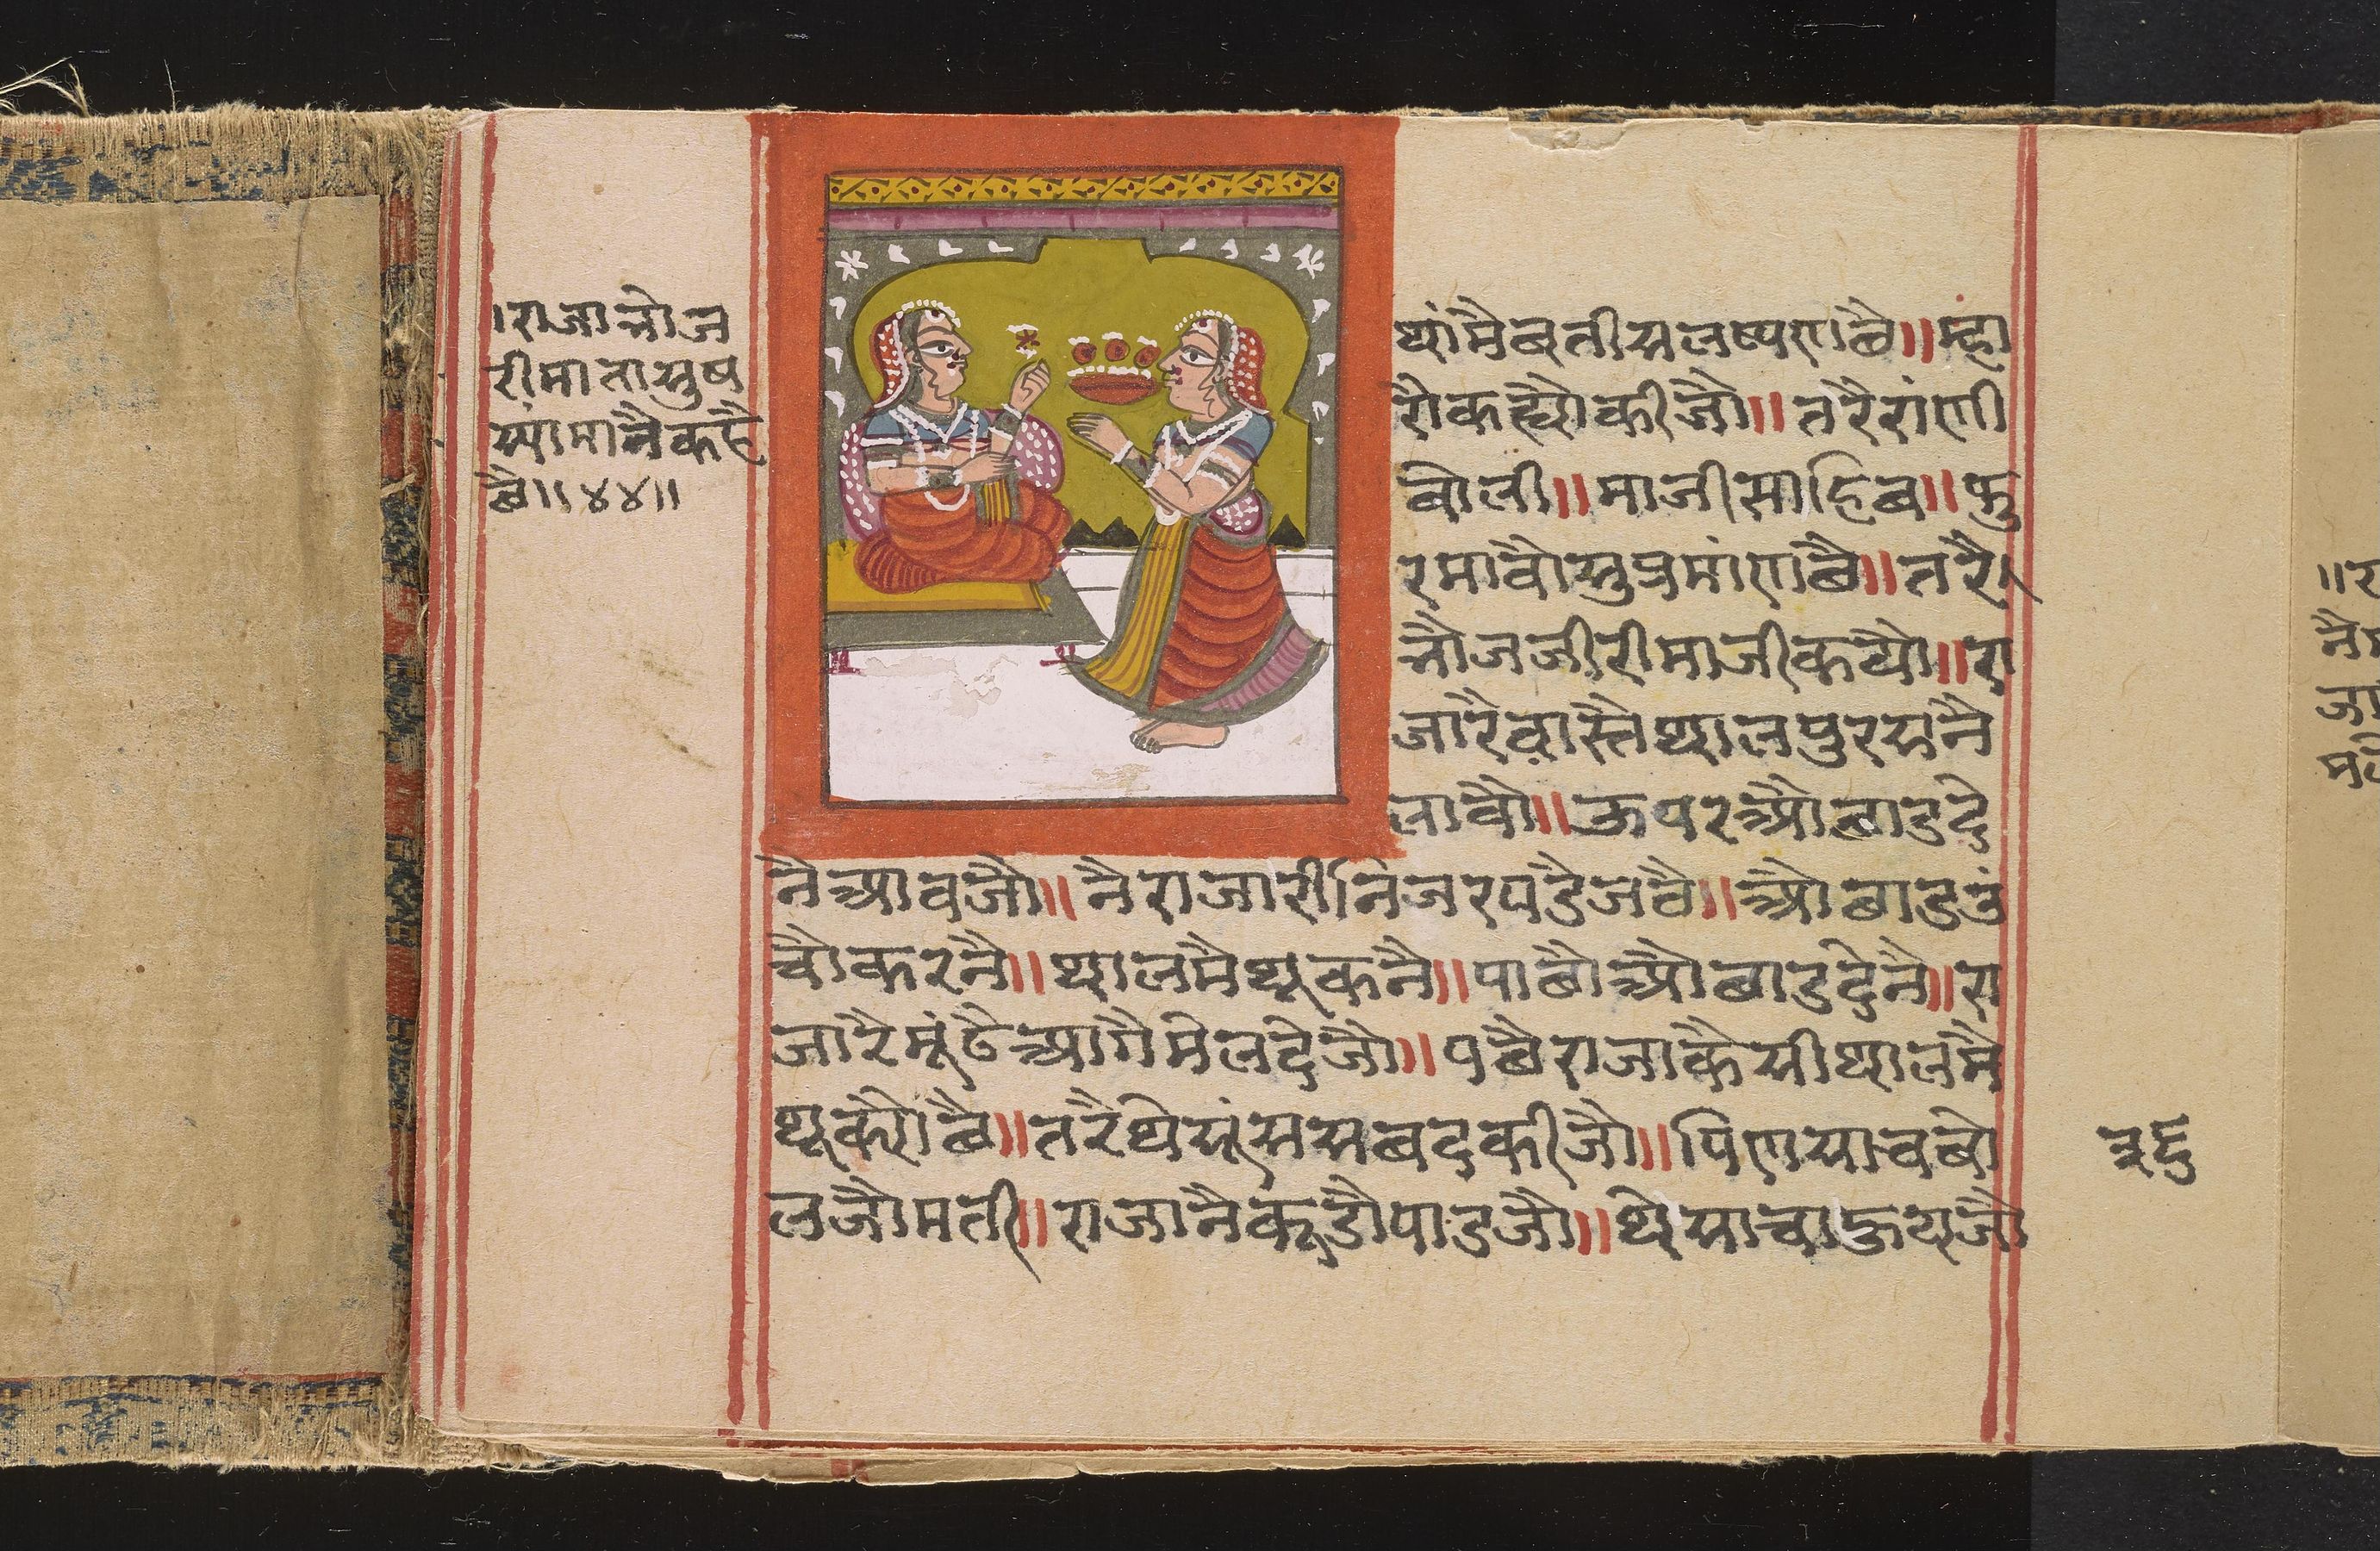 ।राजाभोज
रीमातासुष
स्यांमानैकहै
छै॥४४॥
थांमैबतीसलष्यणछै॥म्हा
रौकह्यौकीजौ॥तरैरांणी
बोली॥माजीसाहिब॥फु
रमावौसुप्रमांणछै॥तरै।
भौजजीरीमाजीकयौ॥रा
जारैवास्तैथालपुरसनै
लावौ॥ऊपरओछाडदे
नैआवजौ॥नैराजारीनिजरपडैजबै॥ओछाडउं
चौकरनै॥थालमैथूकनै॥पाछौओछाडदेनै॥रा
जारैमूंढैआगैमेलदेजौ॥पछैराजाकैसीथालमै
थूकौछै॥तरैथेयूंससबदकीजौ॥पिणसाचबो
लजौमती॥राजानैकूडौपाडजौ॥थेसाचाहुयजौ
३६